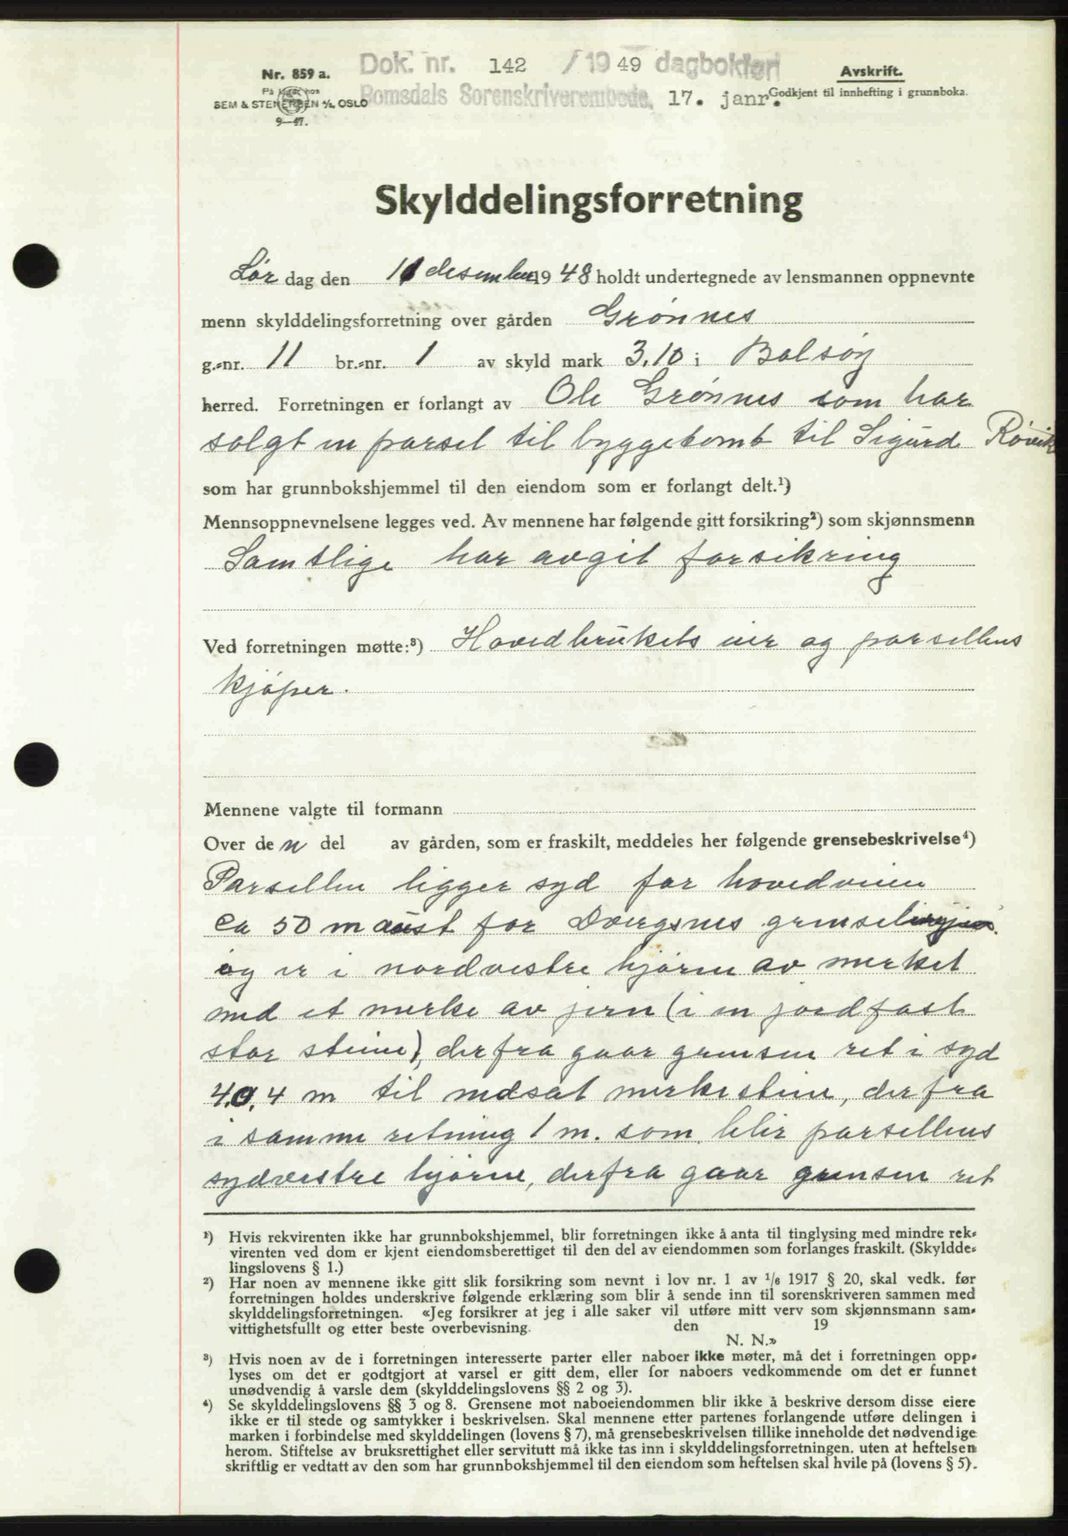 Nr. 859 a.
På lager hos
SEM & STENERSEN A/S, OSLO
9—47.
Dok. nr. 142 / 19 49 dagbokført
Romsdals Sorenskriverembede, 17. janr.
Avskrift.
Godkjent til innhefting i grunnboka.
Skylddelingsforretning
Lør dag den 11 desember 19 48 holdt undertegnede av lensmannen oppnevnte
menn skylddelingsforretning over gården Grønnes
g.-nr. 11 br.-nr. 1 av skyld mark 3.10 i Bolsøy
herred. Forretningen er forlangt av Ole Grønnes som har
solgt en parsel til byggetomt til Sigurd Røvik
som har grunnbokshjemmel til den eiendom som er forlangt delt.¹)
Mennsoppnevnelsene legges ved. Av mennene har følgende gitt forsikring²) som skjønnsmenn
Samtlige har avgit forsikring
Ved forretningen møtte:³) Hovedbrukets eier og parsellens
kjøper.
Mennene valgte til formann
Over de n del av gården, som er fraskilt, meddeles her følgende grensebeskrivelse⁴)
Parsellen ligger syd for hovedveien
ca 50 m aust for grenselinjen
og er i nordvestre hjørne av merket
med et merke av jern (i en jordfast
stor steine), derfra gaar grensen ret i syd
40.4 m til nedsat merkesteine, derfra
i samme retning 1 m. som blir parsellens
sydvestre hjørne, derfra gaar grensen ret
¹) Hvis rekvirenten ikke har grunnbokshjemmel, blir forretningen ikke å anta til tinglysing med mindre rek-
virenten ved dom er kjent eiendomsberettiget til den del av eiendommen som forlanges fraskilt. (Skyldde-
lingslovens § 1.)
²) Har noen av mennene ikke gitt slik forsikring som nevnt i lov nr. 1 av 1/6 1917 § 20, skal vedk. før
forretningen holdes underskrive følgende erklæring som blir å sende inn til sorenskriveren sammen med
skylddelingsforretningen. «Jeg forsikrer at jeg i alle saker vil utføre mitt verv som skjønnsmann sam-
vittighetsfullt og etter beste overbevisning. den 19
N. N.»
³) Hvis noen av de i forretningen interesserte parter eller naboer ikke møter, må det i forretningen opp-
lyses om det er godtgjort at varsel er gitt dem, eller for naboers vedkommende om det er funnet
unødvendig å varsle dem (skylddelingslovens §§ 2 og 3).
⁴) Se skylddelingslovens §§ 3 og 8. Grensene mot naboeiendommen blir ikke å beskrive dersom disse eiere
ikke er til stede og samtykker i beskrivelsen. Skal mennene etter partenes forlangende utføre delingen i
marken i forbindelse med skylddelingen (lovens § 7), må grensebeskrivelsen tillike inneholde det nødvendige
herom. Stiftelse av bruksrettighet eller servitutt må ikke tas inn i skylddelingsforretningen, uten at heftelsen
skriftlig er vedtatt av den som har grunnbokshjemmel til den eiendom som heftelsen skal hvile på (lovens § 5).